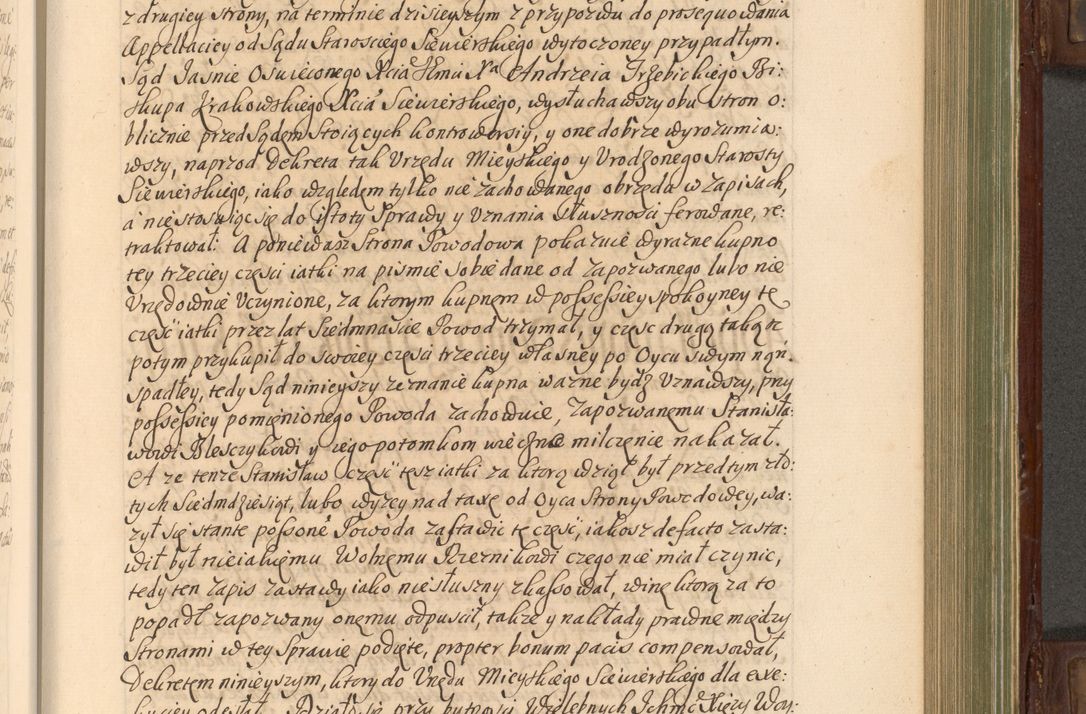 z drugiey strony, na terminie dzisieyszym z przypozwu do prosequowania
Appellaciey od Sądu Starosciego Siewierskiego wytoczoney przypadłym.
Sąd Jaśnie Oswieconego Xcia Jmci Xa Andrzeia Trzebickiego Bi:
skupa Krakowskiego Xcia Siewierskiego, wysłuchawszy obu stron o:
blicznie przed Sądem Stoiących kontrowersiy, y one dobrze wyrozumia:
wszy, naprzod Dekreta tak Urzędu Mieyskiego y Urodzonego Starosty
Siewierskiego, iako względem tylko nie zachowanego obrzędu w Zapisach,
a nie stosuiąc się do istoty Sprawy y Uznania słusznosci ferowane, re:
traktował: A ponieważ Strona Powodowa pokazuie wyrazne kupno
tey trzeciey części iatki na pismie sobie dane od Zapozwanego lubo nie
Urzędownie Uczynione, za ktorym kupnem w possessiey spokoyney tę
część iatki przez lat Siedmnascie Powod trzymał, y częsc drugą także
potym przykupił do swoiey części trzeciey własney po Oycu swym nań
spadłey, tedy Sąd ninieyszy zeznanie kupna wazne bydz Uznawszy, przy
possessiey pomienionego Powoda zachowuie, Zapozwanemu Stanisła:
wowi Bleszczykowi y iego potomkom wieczne milczenie nakazał.
A ze tenze Stanisław część tesz iatki za ktorą wziął był przedtym zło:
tych Siedmdziesiąt, lubo wyzey nad taxę od Oyca Strony Powodowey, wa:
zył się stante possone Powoda zastawic tę część, iakosz defacto zasta:
wił był nieiakiemu Wolnemu Rzeznikowi czego nie miał czynic,
tedy ten Zapis zastawy iako niesłuszny zkassował, winę ktorą za to
popadł zapozwany onemu odpuscił, takze y nakłady prawne między
Stronami w tey Sprawie podięte, propter bonum pacis compensował,
Dekretem ninieyszym, ktory do Urzędu Mieyskiego Siewierskiego dla exe:
kuciey odesłał. Działo się przy bytności Wielebnych Ichmc Xięzy Woy: